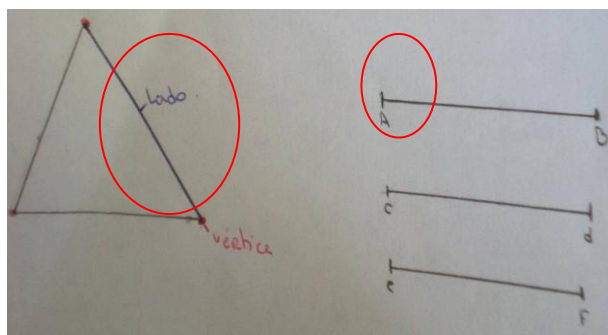 Lado.
vértice
A B
C d
e F